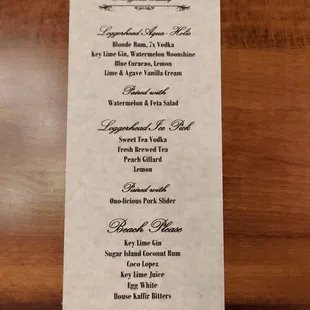 Loggerhead Aqua-Holic
Blonde Rum, 7x Vodka
Key Lime Gin, Watermelon Moonshine
Blue Curacao, Lemon
Lime & Agave Vanilla Cream
Paired with
Watermelon & Feta Salad
Loggerhead Ice Pick
Sweet Tea Vodka
Fresh Brewed Tea
Peach Gillard
Lemon
Paired with
Ono-licious Pork Slider
Beach Please
Key Lime Gin
Sugar Island Coconut Rum
Coco Lopez
Key Lime Juice
Egg White
House Kaffir Bitters